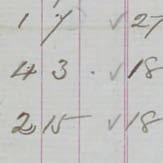 1 7 ✓ 27
43 . ✓ 18
2 15 ✓ 18